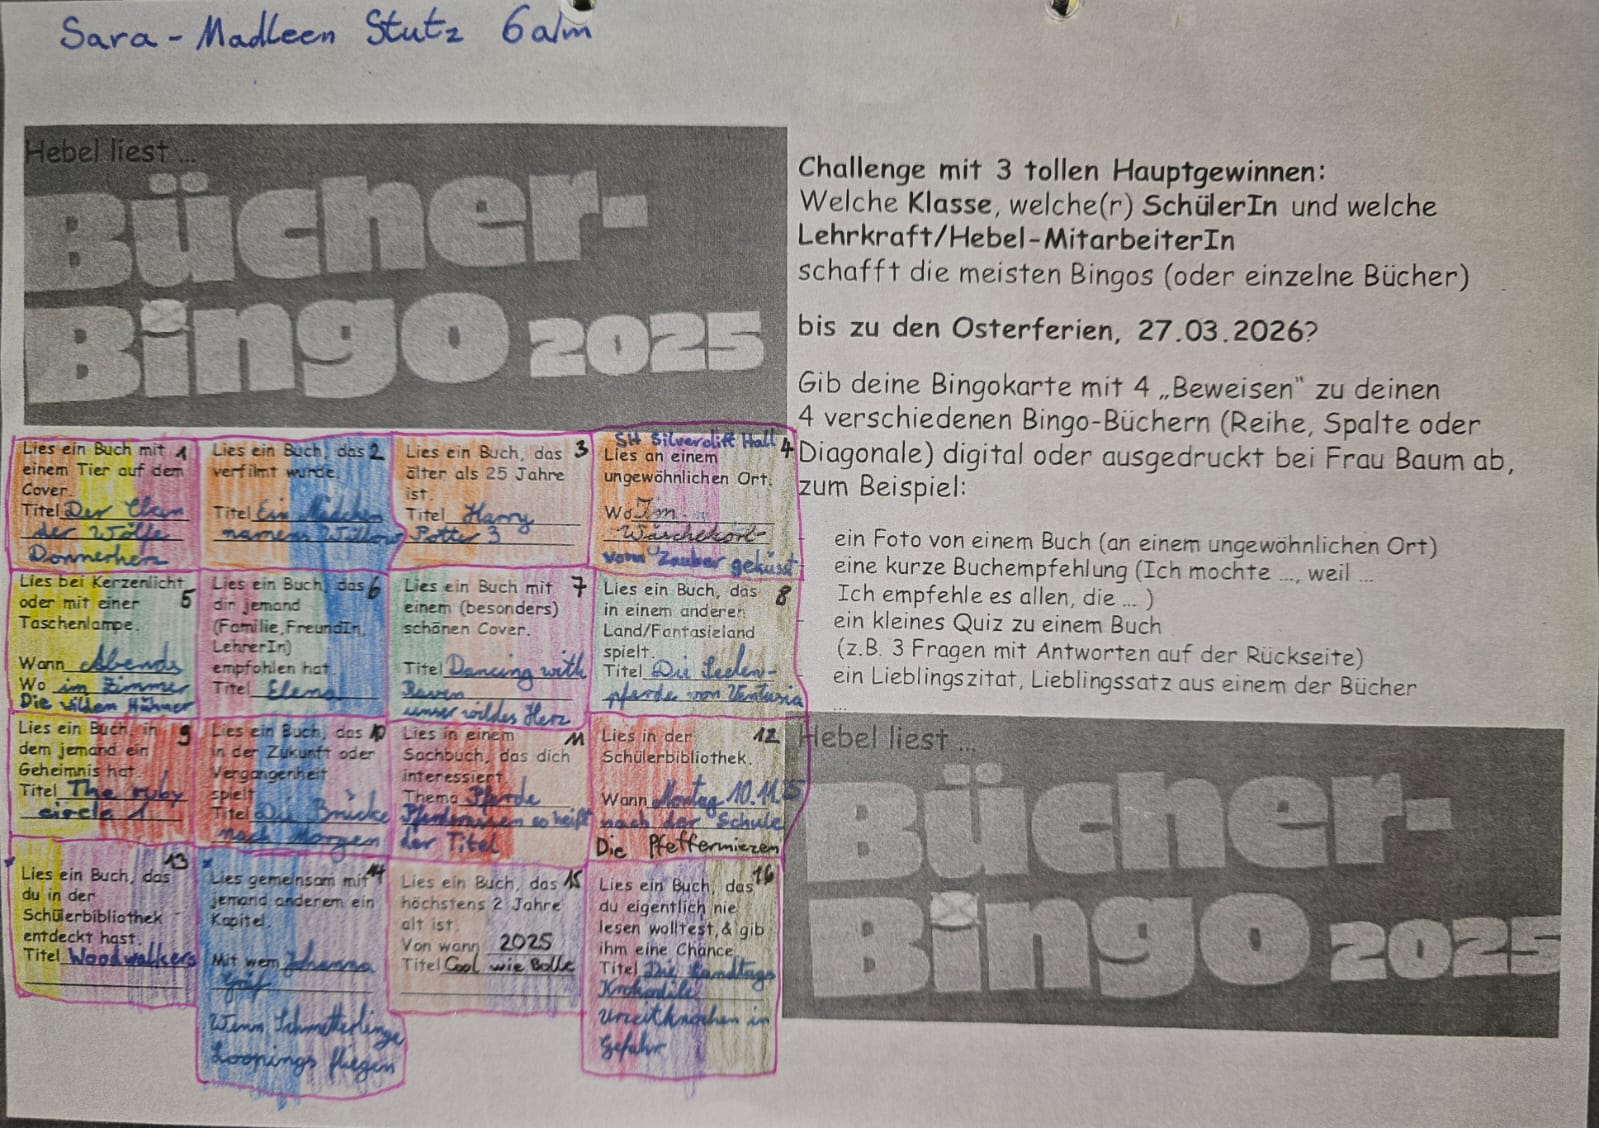 Sara-Madleen Stutz 6a/m
Hebel liest ...
Bücher-
Bingo 2025
Challenge mit 3 tollen Hauptgewinnen:
Welche Klasse, welche(r) SchülerIn und welche
Lehrkraft/Hebel-MitarbeiterIn
schafft die meisten Bingos (oder einzelne Bücher)
bis zu den Osterferien, 27.03.2026?
Gib deine Bingokarte mit 4 „Beweisen" zu deinen
4 verschiedenen Bingo-Büchern (Reihe, Spalte oder
Diagonale) digital oder ausgedruckt bei Frau Baum ab,
zum Beispiel:
ein Foto von einem Buch (an einem ungewöhnlichen Ort)
eine kurze Buchempfehlung (Ich mochte ..., weil ...
Ich empfehle es allen, die ... )
ein kleines Quiz zu einem Buch
(z.B. 3 Fragen mit Antworten auf der Rückseite)
ein Lieblingszitat, Lieblingssatz aus einem der Bücher
...
Lies ein Buch mit 1
einem Tier auf dem
Cover.
Titel Der Clan
der Wölfe
Donnerherz
Lies ein Buch, das 2
verfilmt wurde.
Titel Ein Mädchen
namens Willow
Lies ein Buch, das 3
älter als 25 Jahre
ist.
Titel Harry
Potter 3
SH Silverdift Hall 4
Lies an einem
ungewöhnlichen Ort.
Wo Im
Wäschekorb
vom Zauber geküsst
Lies bei Kerzenlicht
oder mit einer 5
Taschenlampe.
Wann Abends
Wo im Zimmer
Die wilden Hühner
Lies ein Buch, das 6
dir jemand
(Familie, FreundIn,
LehrerIn)
empfohlen hat.
Titel Elena
Lies ein Buch mit 7
einem (besonders)
schönen Cover.
Titel Dancing with
Raven
unser wildes Herz
Lies ein Buch, das 8
in einem anderen
Land/Fantasieland
spielt.
Titel Die Seelen-
pferde von Ventusia
Lies ein Buch, in 9
dem jemand ein
Geheimnis hat.
Titel The ruby
circle 1
Lies ein Buch, das 10
in der Zukunft oder
Vergangenheit
spielt
Titel Die Brücke
nach Morgen
Lies in einem 11
Sachbuch, das dich
interessiert.
Thema Pferde
Pferderassen so heißt
der Titel
Lies in der 12
Schülerbibliothek.
Wann Montag 10.11.25
nach der Schule
Die Pfeffermiezen
Lies ein Buch, das 13
du in der
Schülerbibliothek
entdeckt hast.
Titel Woodwalkers
Lies gemeinsam mit 14
jemand anderem ein
Kapitel.
Mit wem Johanna
Gräf
Wenn Schmetterlinge
Loopings fliegen
Lies ein Buch, das 15
höchstens 2 Jahre
alt ist.
Von wann 2025
Titel Cool wie Bolle
Lies ein Buch, das 16
du eigentlich nie
lesen wolltest, & gib
ihm eine Chance.
Titel Die Landtags
Krokodile
Urzeitknochen in
Gefahr
Hebel liest ...
Bücher-
Bingo 2025